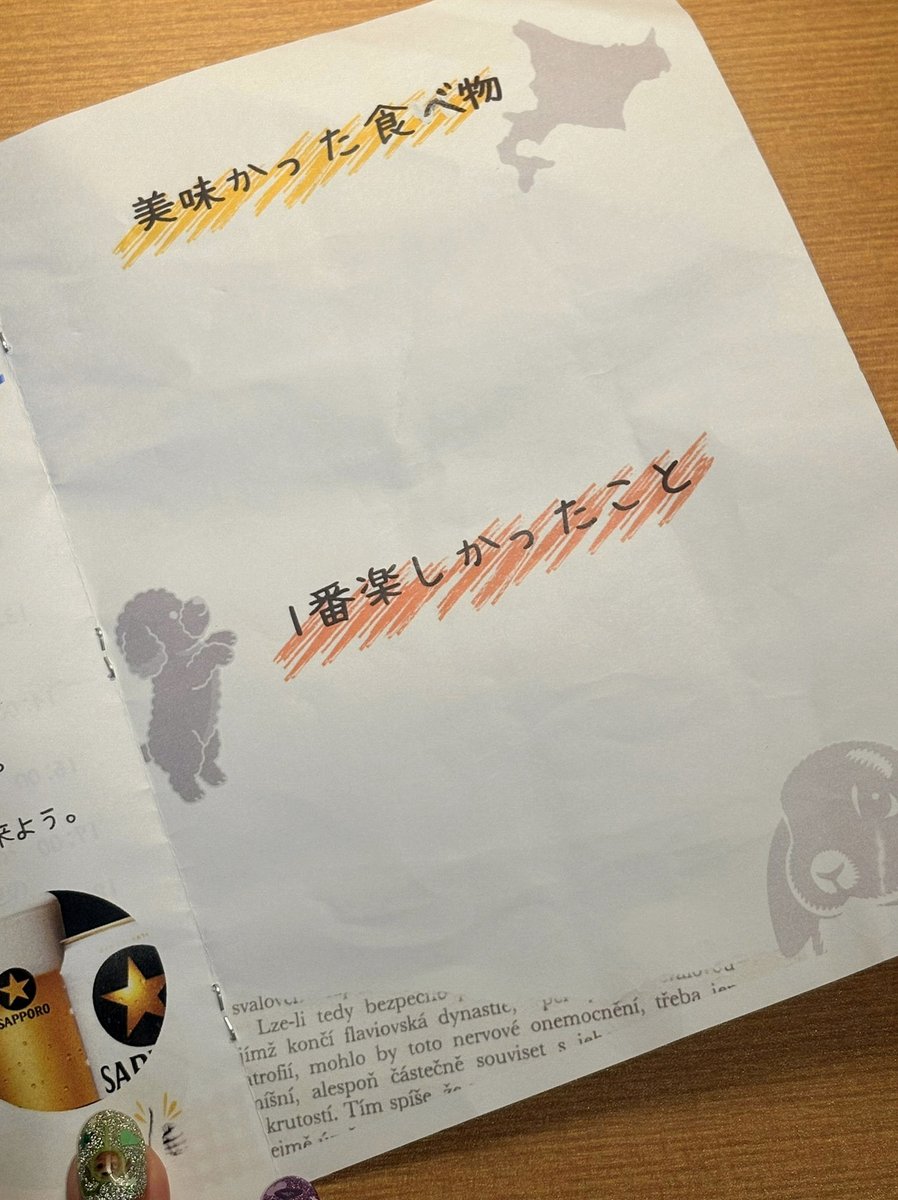 美味かった食べ物
1番楽しかったこと
。
来よう。
SAPPORO
svalovén
Lze-li tedy bezpečně
jímž končí flaviovská dynastie,
atrofií, mohlo by toto nervové onemocnění, třeba jen
níšní, alespoň částečně souviset s
krutostí. Tím spíše že
ejmě